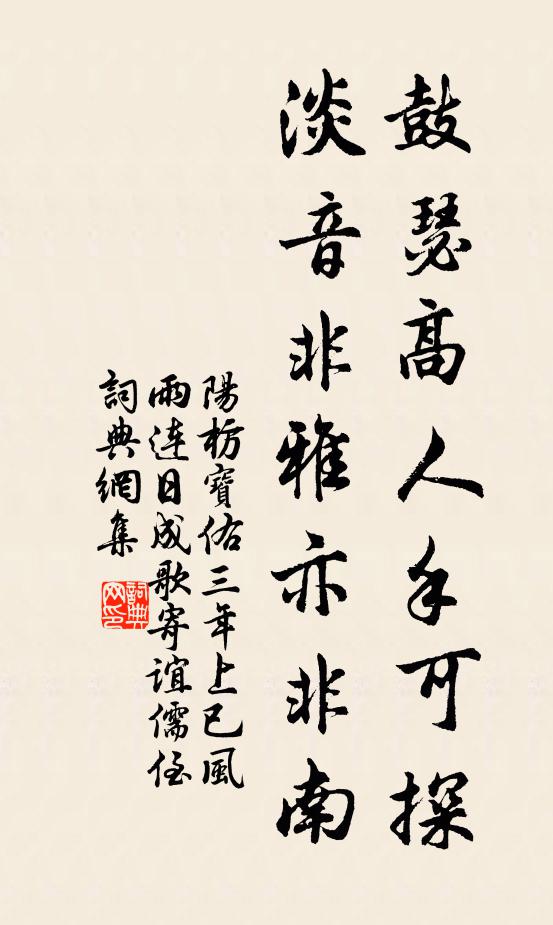 鼓瑟高人手可探
淡音非雅亦非南
陽枋寶佑三年上巳風
雨連日成歌寄誼儒侄
詞典網集
詞典網印